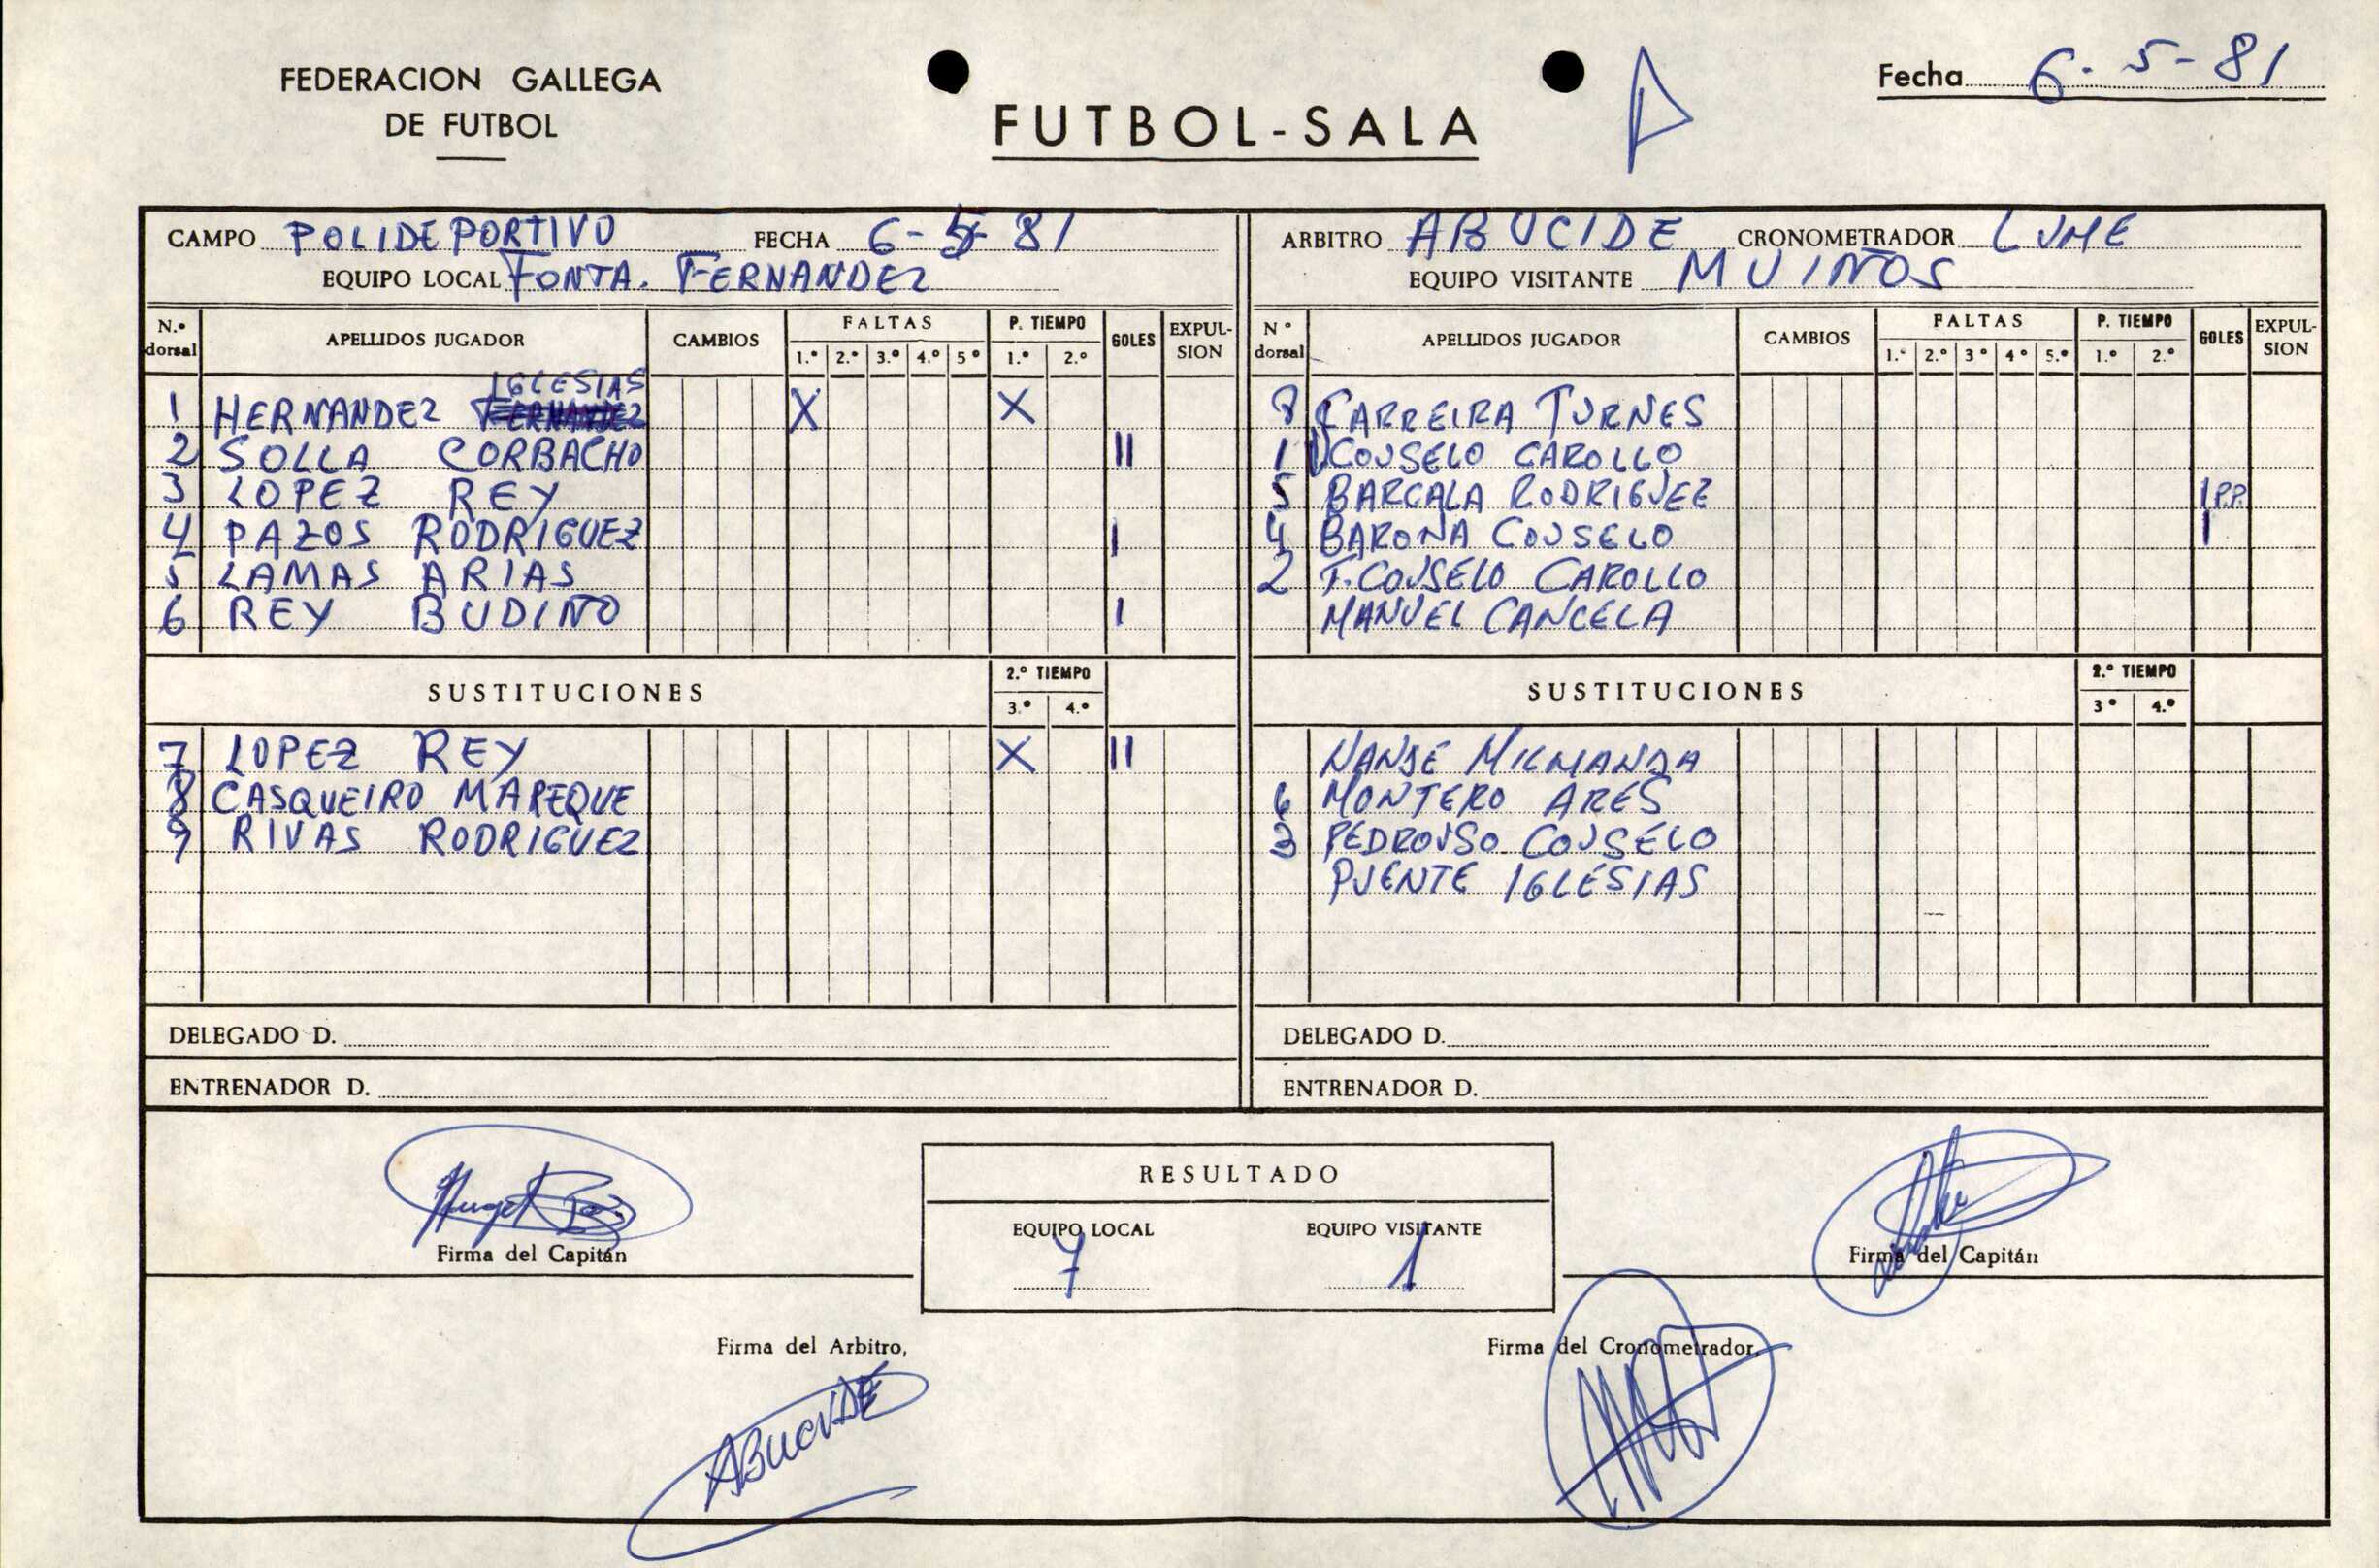 FEDERACION GALLEGA
DE FUTBOL
FUTBOL-SALA
Fecha 6-5-81
CAMPO POLIDEPORTIVO FECHA 6-5-81
EQUIPO LOCAL FONTA. FERNANDEZ
N.º dorsal APELLIDOS JUGADOR CAMBIOS FALTAS 1.º 2.º 3.º 4.º 5º P. TIEMPO 1.º 2.º GOLES EXPULSION
IGLESIAS
1 HERNANDEZ X X
2 SOLLA CORBACHO II
3 LOPEZ REY
4 PAZOS RODRIGUEZ I
5 LAMAS ARIAS
6 REY BUDIÑO I
SUSTITUCIONES 2.º TIEMPO 3.º 4.º
7 LOPEZ REY X II
8 CASQUEIRO MAREQUE
9 RIVAS RODRIGUEZ
DELEGADO D.
ENTRENADOR D.
ARBITRO ABUCIDE CRONOMETRADOR LUME
EQUIPO VISITANTE MUIÑOS
Nº dorsal APELLIDOS JUGADOR CAMBIOS FALTAS 1.º 2.º 3º 4º 5.º P. TIEMPO 1.º 2.º GOLES EXPULSION
8 CARREIRA TURNES
1 COUSELO CAROLLO
5 BARCALA RODRIGUEZ 1 P.P.
4 BARONA COUSELO I
2 F. COUSELO CAROLLO
MANUEL CANCELA
SUSTITUCIONES 2.º TIEMPO 3º 4.º
MILMANDA
6 MONTERO ARES
3 PEDROUSO COUSELO
PUENTE IGLESIAS
DELEGADO D.
ENTRENADOR D.
Firma del Capitán
RESULTADO
EQUIPO LOCAL EQUIPO VISITANTE
7 1
Firma del Capitán
Firma del Arbitro,
ABUCIDE
Firma del Cronometrador,